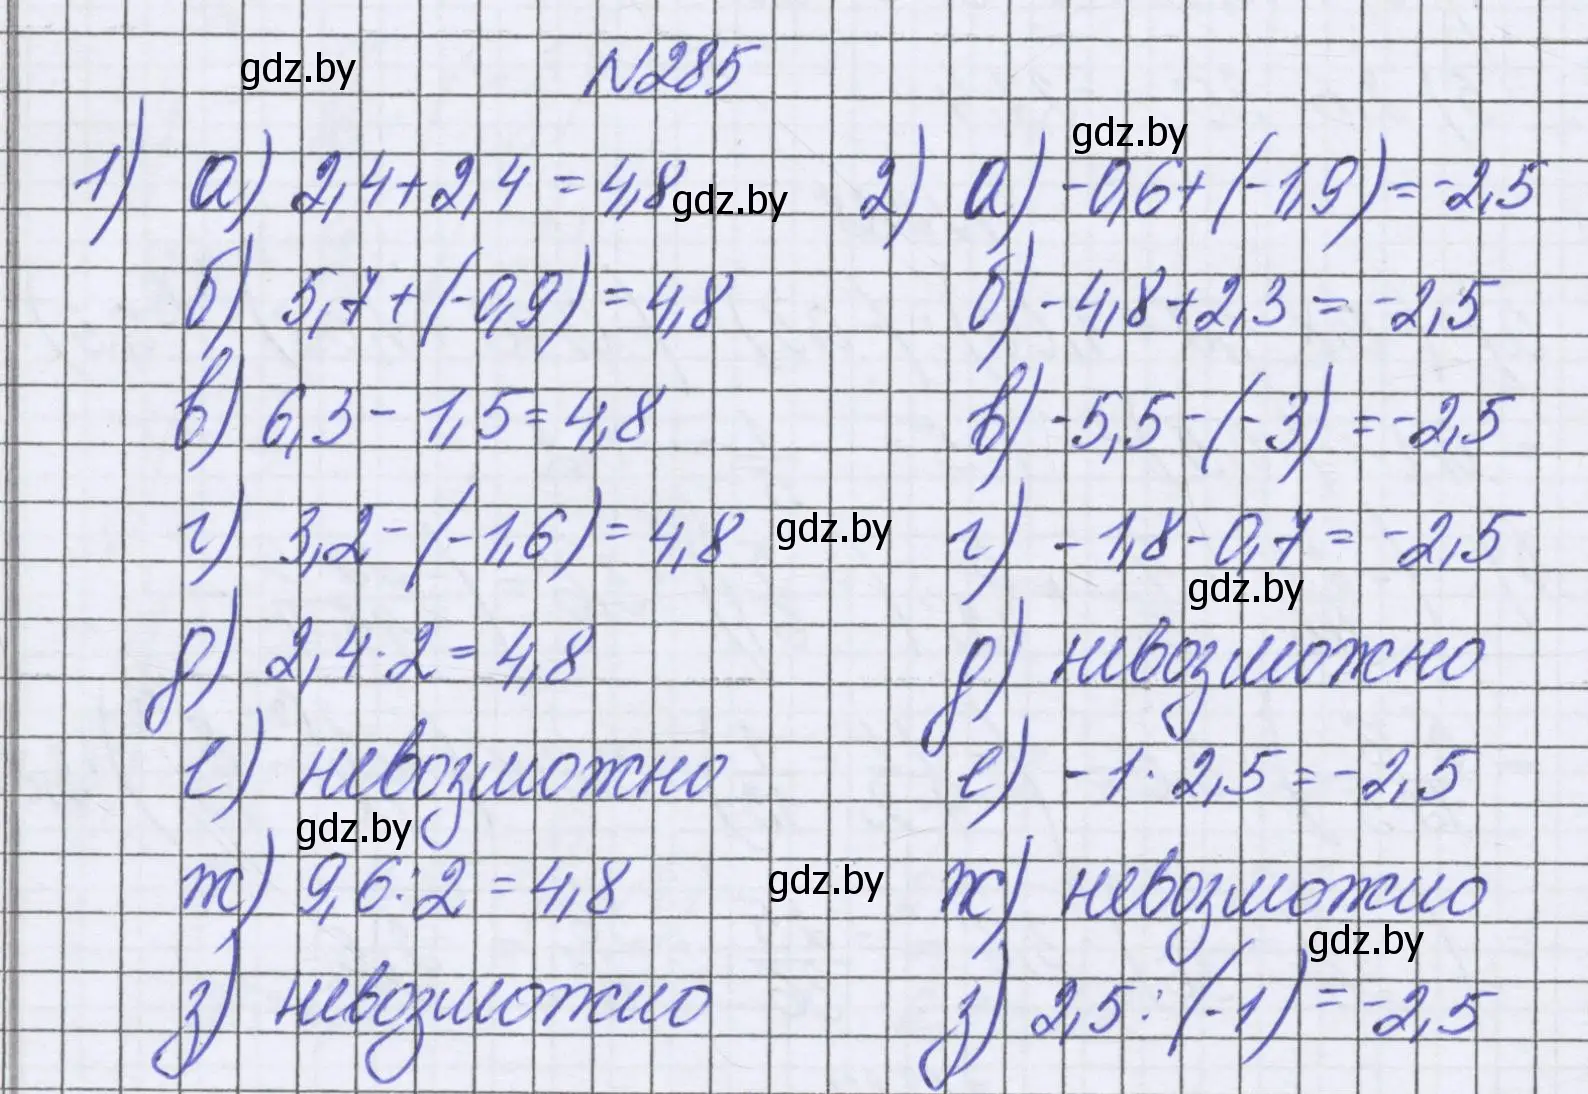 №285
1) а) 2,4+2,4 = 4,8
б) 5,7+(-0,9) = 4,8
в) 6,3 - 1,5 = 4,8
г) 3,2 - (-1,6) = 4,8
д) 2,4 · 2 = 4,8
е) невозможно
ж) 9,6 : 2 = 4,8
з) невозможно
2) а) -0,6+(-1,9) = -2,5
б) -4,8+2,3 = -2,5
в) -5,5-(-3) = -2,5
г) -1,8-0,7 = -2,5
д) невозможно
е) -1 · 2,5 = -2,5
ж) невозможно
з) 2,5 : (-1) = -2,5
gdz.by
gdz.by
gdz.by
gdz.by
gdz.by
gdz.by
gdz.by
gdz.by